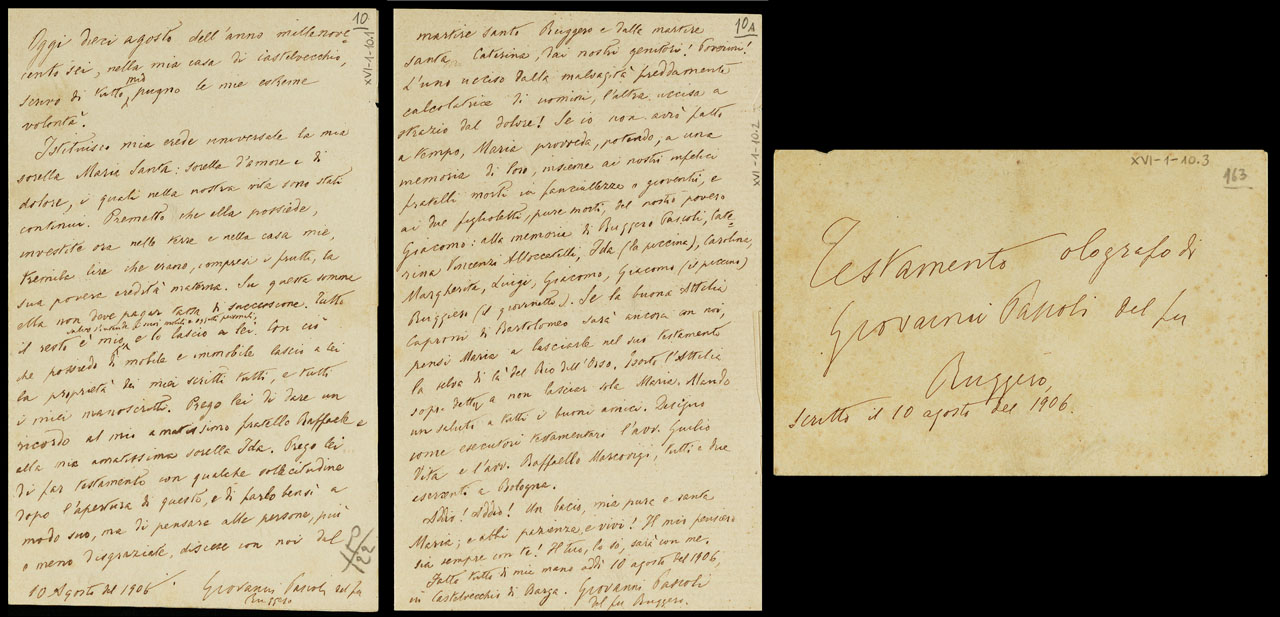 10
XVI-1-10.1
Oggi dieci agosto dell'anno millenove=
cento sei, nella mia casa di Castelvecchio,
scrivo di tutto mio pugno le mie estreme
volontà.
Istituisco mia erede universale la mia
sorella Maria Santa: sorella d'amore e di
dolore, i quali nella nostra vita sono stati
continui. Premetto che ella possiede,
investite ora nelle terre e nella casa mie,
tremila lire che erano, compresi i frutti, la
sua povera eredità materna. Su questa somma
ella non deve pagar tassa di successione. Tutto
il resto è mio, e lo lascio a lei. Con ciò
che possiedo di mobile e immobile lascio a lei
la proprietà dei miei scritti tutti, e tutti
i miei manoscritti. Prego lei di dare un
ricordo al mio amatissimo fratello Raffaele e
alla mia amatissima sorella Ida. Prego lei
di far testamento con qualche sollecitudine
dopo l'apertura di questo, e di farlo bensì a
modo suo, ma di pensare alle persone, più
o meno disgraziate, discese con noi dal
10 Agosto del 1906 Giovanni Pascoli del fu
Ruggero
10 1
XVI-1-10.2
martire santo Ruggero e dalla martire
santa Caterina, dai nostri genitori! Poverini!
L'uno ucciso dalla malvagità freddamente
calcolatrice di uomini, l'altra uccisa a
strazio dal dolore! Se io non avrò fatto
a tempo, Maria provveda, potendo, a una
memoria di loro, insieme ai nostri infelici
fratelli morti in fanciullezza o gioventù, e
ai due figlioletti, pure morti, del nostro povero
Giacomo: alla memoria di Ruggero Pascoli, Cate=
rina Vincenzi Alloccatelli, Ida (la piccina), Carolina,
Margherita, Luigi, Giacomo, Giacomo (il piccino)
Ruggiero (il giovinetto). Se la buona Attilia
Caproni di Bartolomeo sarà ancora con noi,
pensi Maria a lasciarle nel suo testamento
la selva di là del Rio dell'Orso. Esorto l'Attilia
sopradetta a non lasciar sola Maria. Mando
un saluto a tutti i buoni amici. Designo
come esecutori testamentari l'avv. Giulio
Vita e l'avv. Raffaello Marcovigi, tutti e due
esercenti a Bologna.
Addio! Addio! Un bacio, mia pura e santa
Maria; e abbi pazienza, e vivi! Il mio pensiero
sia sempre con te! Il tuo, lo so, sarà con me.
Fatto tutto di mia mano addì 10 agosto del 1906,
in Castelvecchio di Barga. Giovanni Pascoli
del fu Ruggero.
XVI-1-10.3
163
Testamento olografo di
Giovanni Pascoli del fu
Ruggero,
scritto il 10 agosto del 1906.